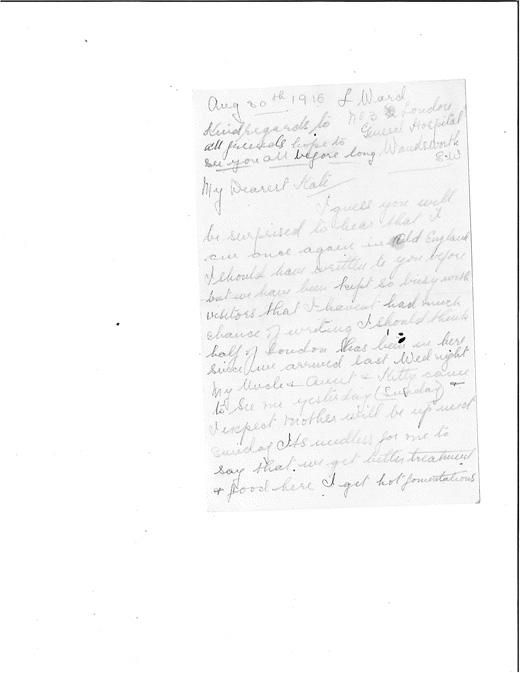 Aug 20th 1916 L Ward
Kind regards to No 3 London
all friends hope to General Hospital
see you all before long Wandsworth
S.W
My Dearest Kate
I guess you will
be surprised to hear that I
am once again in Old England
I should have written to you before
but we have been kept so busy with
visitors that I havent had much
chance of writing I should think
half of London has been in here
since we arrived last Wed night
My Uncle & Aunt & Kitty came
to see me yesterday (Sunday) &
I expect Mother will be up next
Sunday Its needless for me to
say that we get better treatment
& food here I get hot fomentations